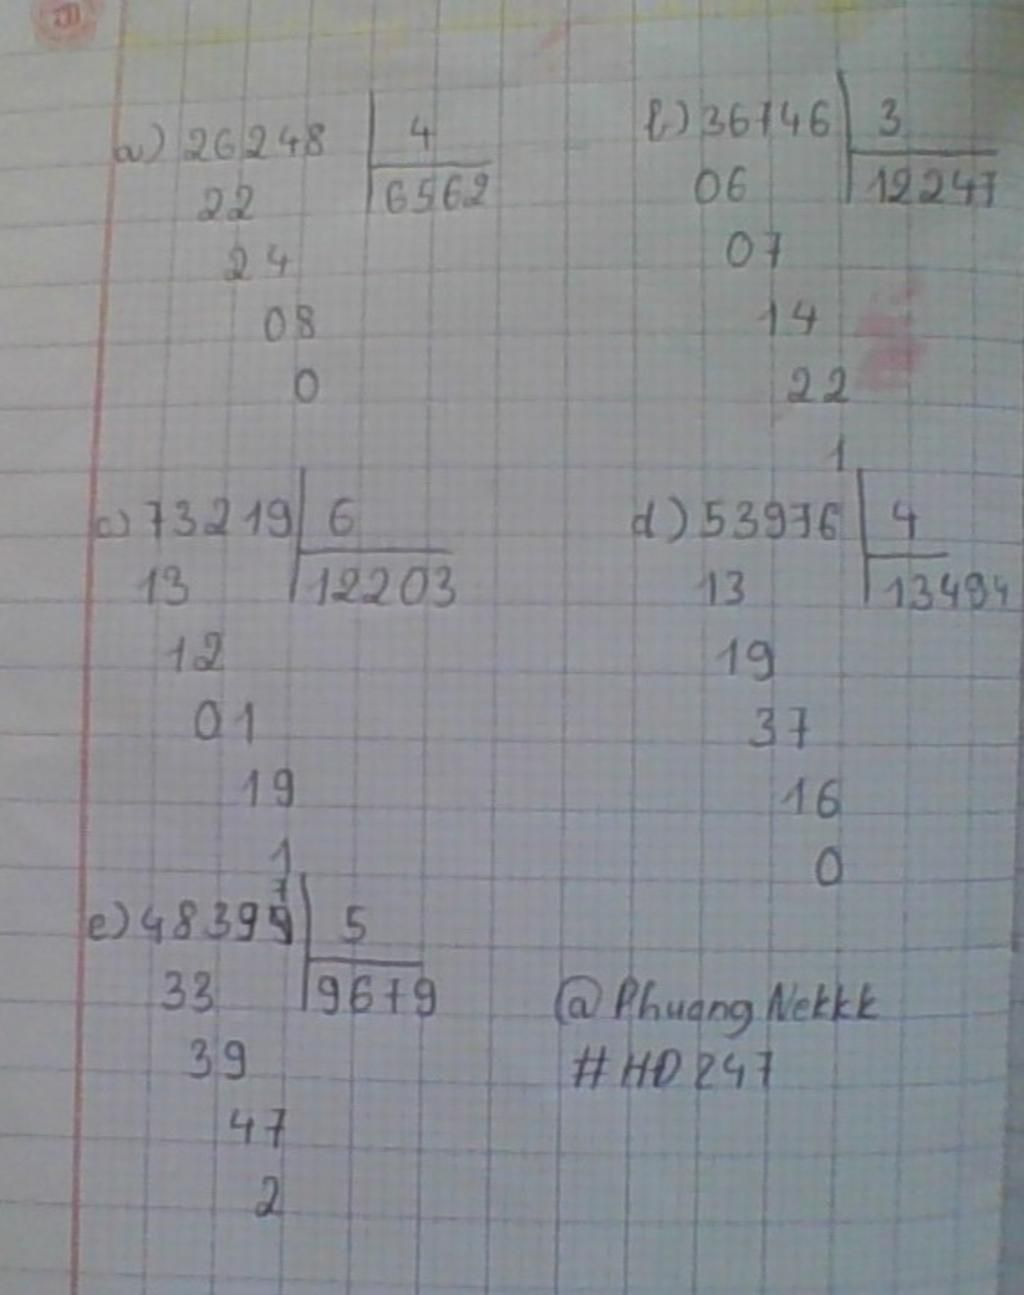 a) 26248 4
22 6562
24
08
0
b) 36746 3
06 12247
07
14
22
1
c) 73219 6
13 12203
12
01
19
1
d) 53976 4
13 13494
19
37
16
0
7
e) 48399 5
33 9679
39
47
2
@PhuongNekkk
#HD247